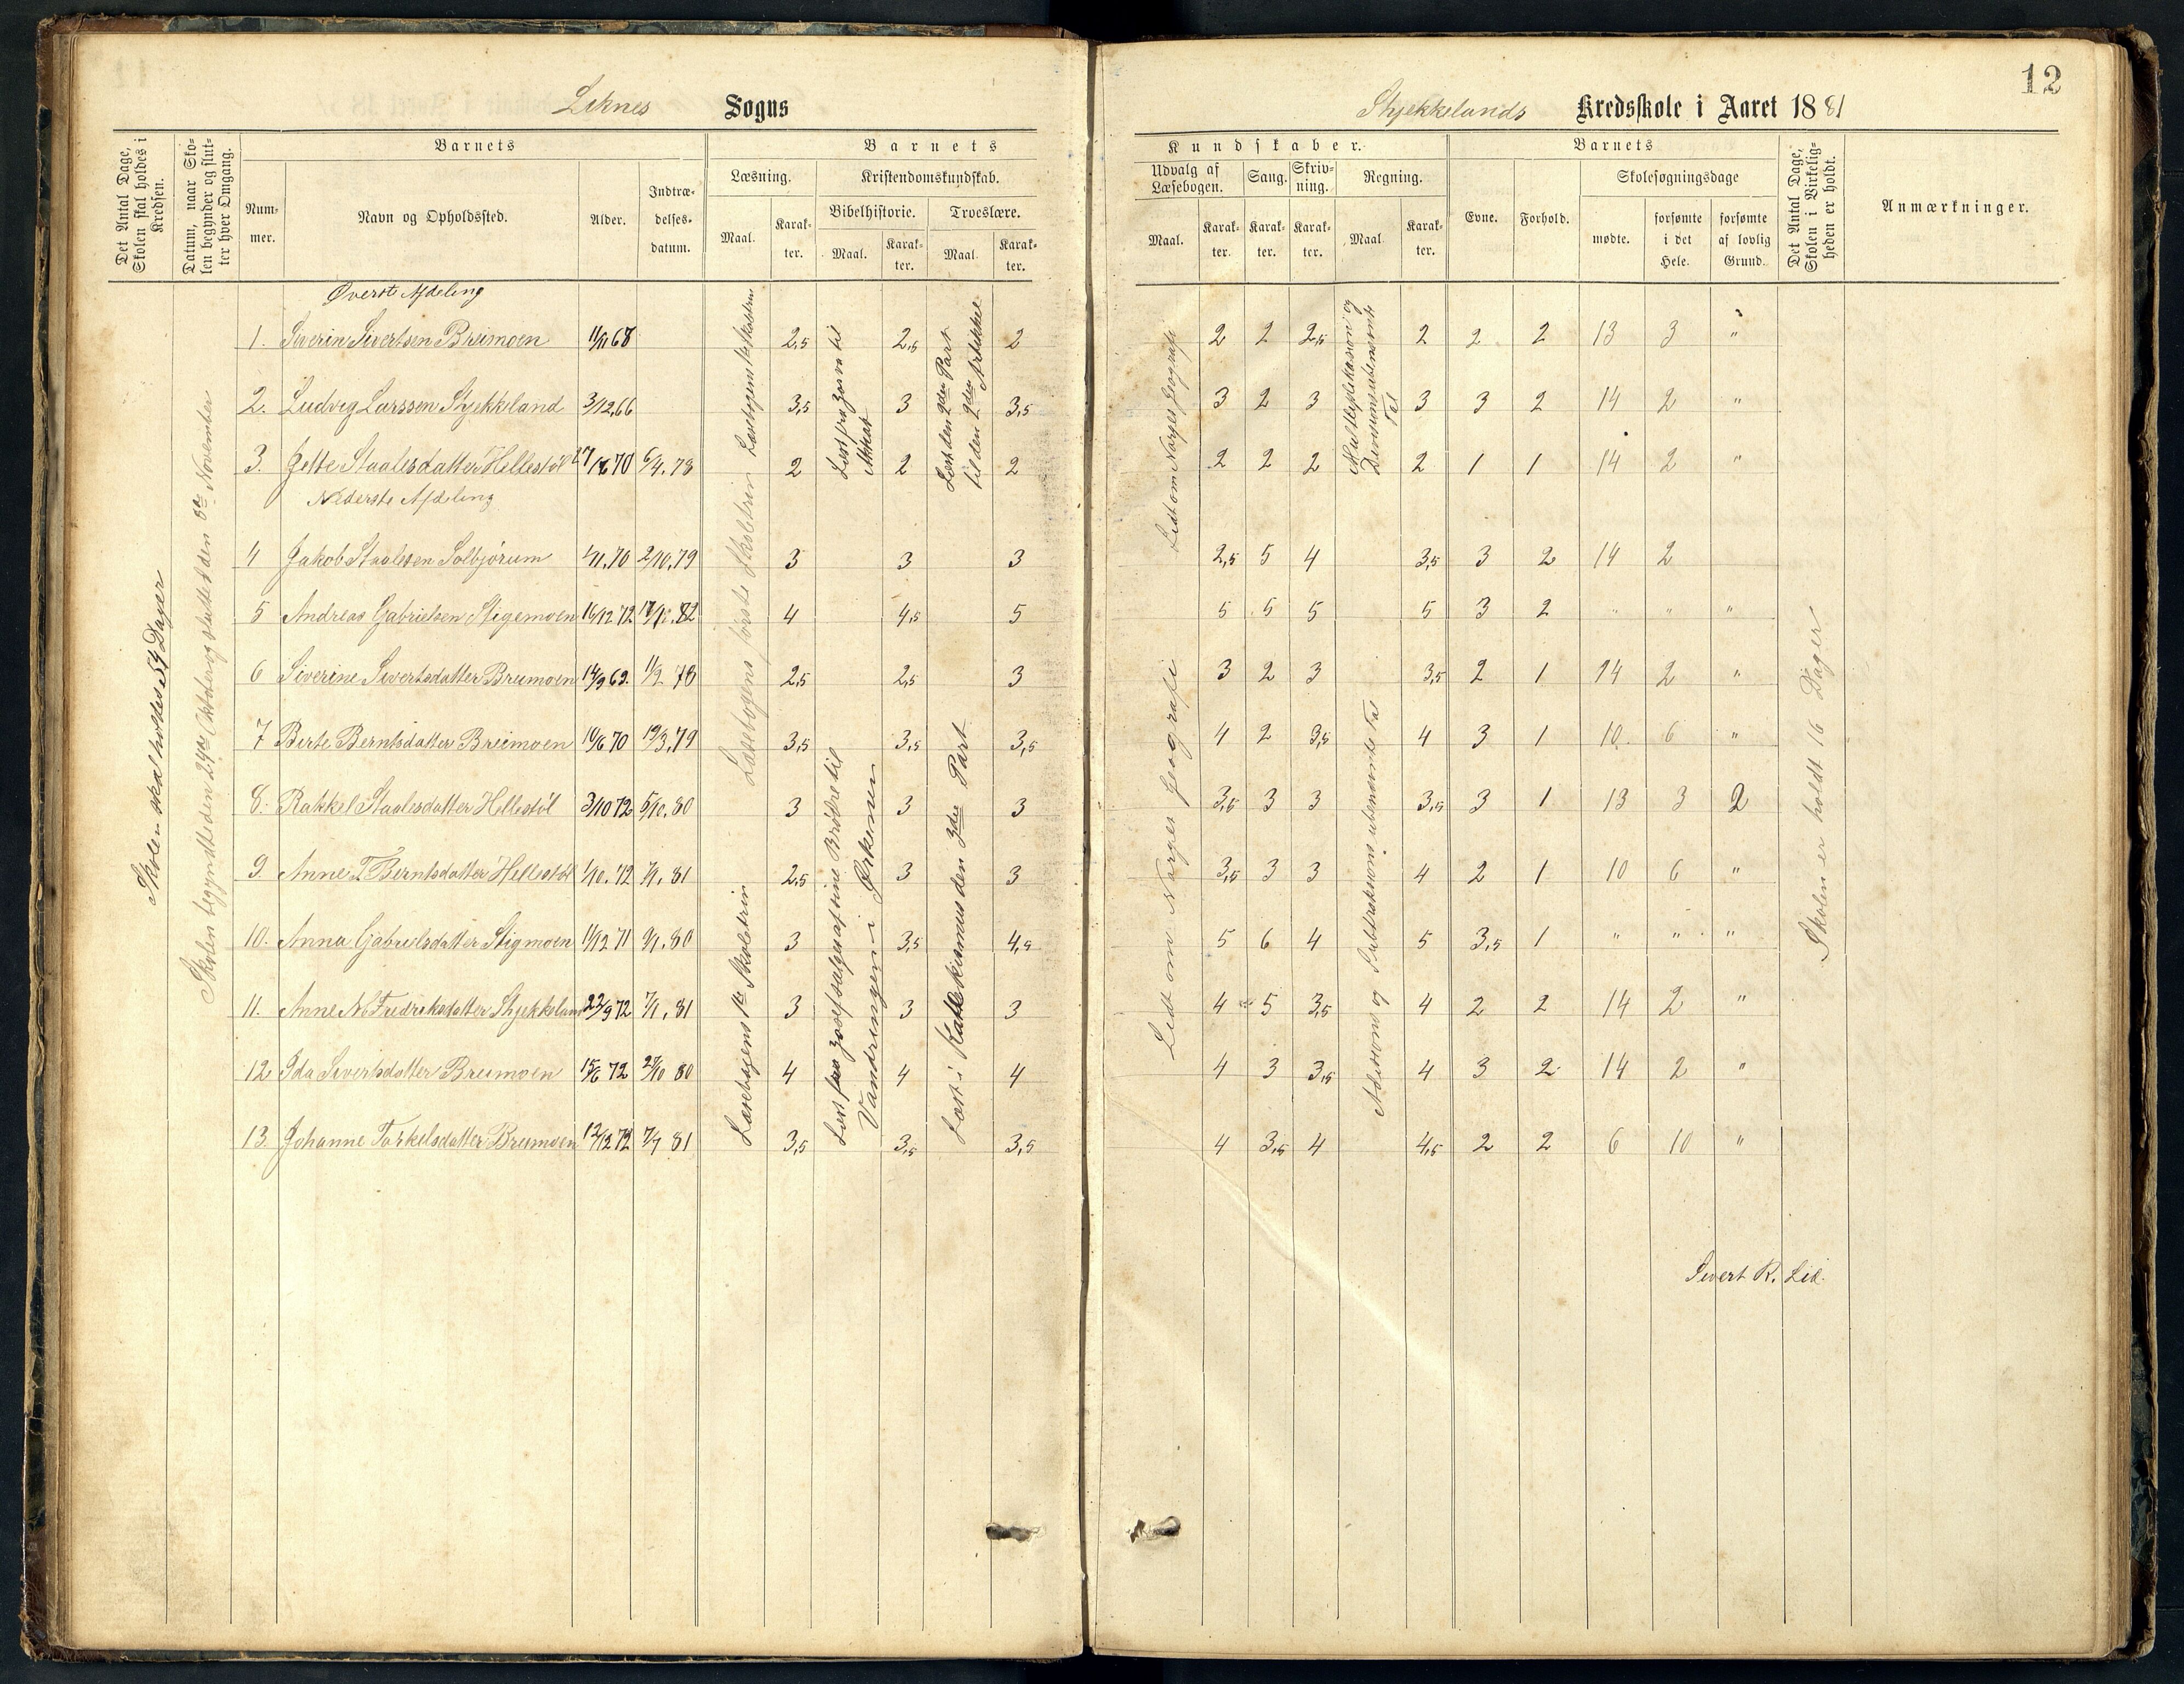 Leknes Sogns
Skjekkelands Kredsskole i Aaret 1881
12
Det Antal Dage, Skolen skal holdes i Kredsen.
Datum, naar Skolen begynder og slutter hver Omgang.
Barnets
Nummer.
Navn og Opholdssted.
Alder.
Indtrædelses-datum.
Barnets
Læsning.
Maal.
Karakter.
Kristendomskundskab.
Bibelhistorie.
Maal.
Karakter.
Troeslære.
Maal.
Karakter.
Kundskaber.
Udvalg af Læsebogen.
Maal.
Karakter.
Sang.
Karakter.
Skrivning.
Karakter.
Regning.
Maal
Karakter.
Barnets
Evne.
Forhold.
Skolesøgningsdage
mødte.
forsømte i det Hele.
forsømte af lovlig Grund.
Det Antal Dage, Skolen i Virkeligheden er holdt.
Anmærkninger.
Skolen skal holdes 54 Dager
Skolen begyndte den 24de Oktober og sluttet den November
Øverste Afdeling
1. Siverin Sivertsen Breimoen 1/11 68 2,5 2,5 2 2 2 2,5 2 2 2 13 3 "
2. Ludvig Larssen Skjekkeland 3/12,66 3,5 3 3,5 3 2 3 3 3 2 14 2 "
3. Jette Staalesdatter Hellestøl 70 6/4.78 2 2 2 2 2 2 2 1 1 14 2 "
Nederste Afdeling
4 Jakob Staalesen Solbjørum 4/11.70 2/10,79 3 3 3 2,5 5 4 3,5 3 2 14 2
5 Andreas Gabrielsen Stigemoen 16/12 72 82 4 4,5 5 5 5 5 5 3 2 " " "
6 Siverine Sivertsdatter Breimoen 14/9 69. 1/2 78 2,5 2,5 3 3 2 3 3,5 2 1 14 2 "
7 Berte Berntsdatter Breimoen 10/6 70 19/3,79 3,5 3,5 3,5 4 2 3,5 4 3 1 10 6 "
8. Rakkel Staalesdatter Hellestøl 3/10 72 5/10,80 3 3 3 3,5 3 3 3,5 3 1 13 3 2
9. Anne T Berntsdatter Hellestøl 1/10.72 7/1, 81 2,5 3 3 3,5 3 3 4 2 1 10 6 "
10. Anna Gabrielsdatter Stigmoen 1/12 71 9/1,80 3 3,5 4,5 5 6 4 5 3,5 1 " " "
11. Anne M Fredriksdatter Skjekkeland 22/9 72 7/1, 81 3 3 3 4 5 3,5 4 2 2 14 2 "
12. Ida Sivertsdatter Breimoen 15/6 72 80 4 4 4 4 3 3,5 4 3 2 14 2 "
13. Johanne Torkelsdatter Breimoen 12/12 72 7/1 81 3,5 3,5 3,5 4 3,5 4 4,5 2 2 6 10 "
Læsebogens 1ste Skoletrin
Læst fra til
Læst den 2den Part til den 2den Artikkel
Læsebogens første Skoletrin
Læsebogens 1ste Skoletrin
Læst fra Josef sælges af sine Brødre til Vandringen i Ørkenen
Læst i Katekismus den 3die Part
Lidt om Norges Geografi
Multiplikasion og Division ubenævnte Tal
Lidt om Norges Geografi
Adisions og Subtraksions ubenævnte Tal
Skolen er holdt 16 Dager
Sivert R. Lid.